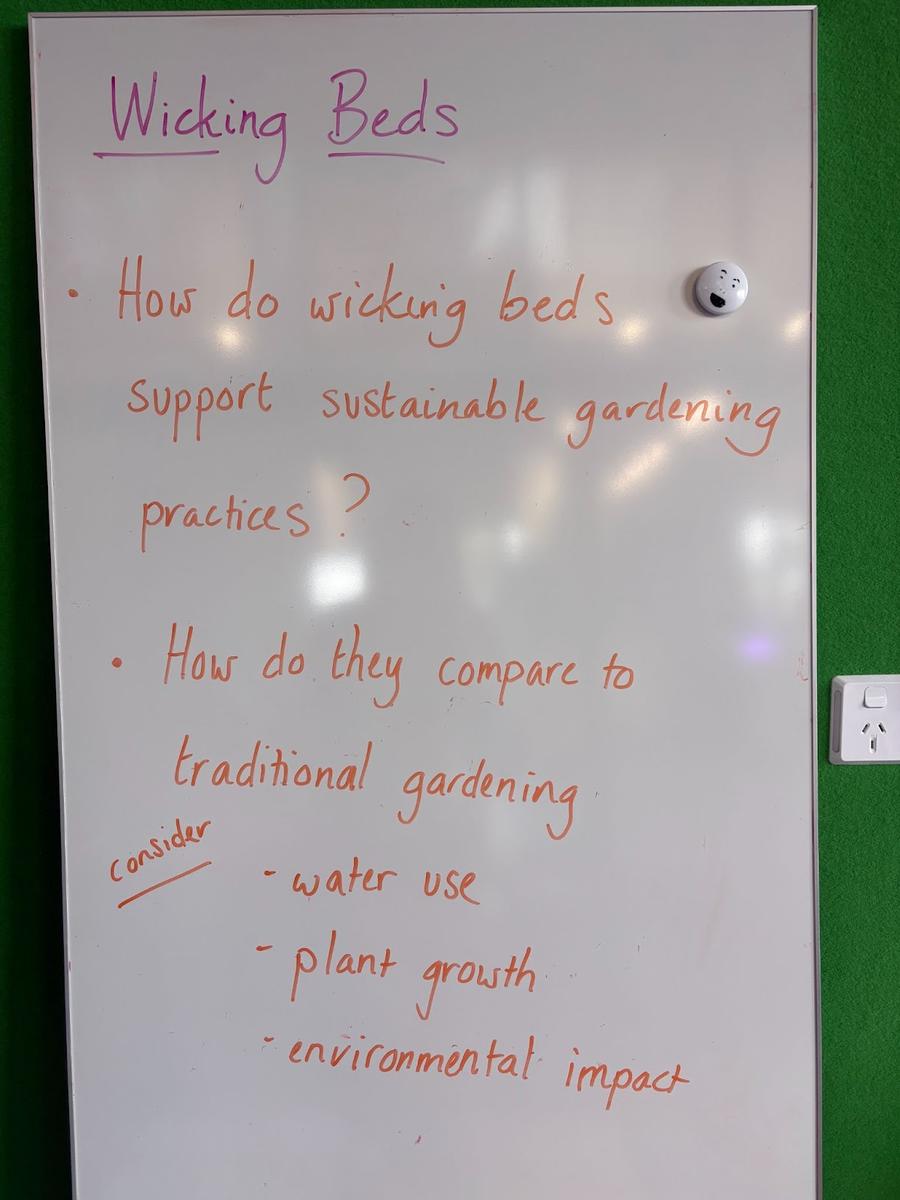 Wicking Beds
• How do wicking beds
support sustainable gardening
practices?
• How do they compare to
traditional gardening
consider
- water use
- plant growth
- environmental impact